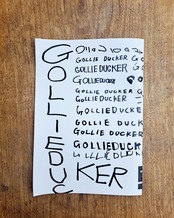 GOLLIEDUC
GOLLIE DUCKER
GOLLIE DUCKER
GOLLIEDUCKER
GOLLIE DUCKER
GOLLIE DUCKER
GOLLIEDUCKE
GOLLIE DUCK
GOLLIE DUCKER
GOLLIEDUCK
KER